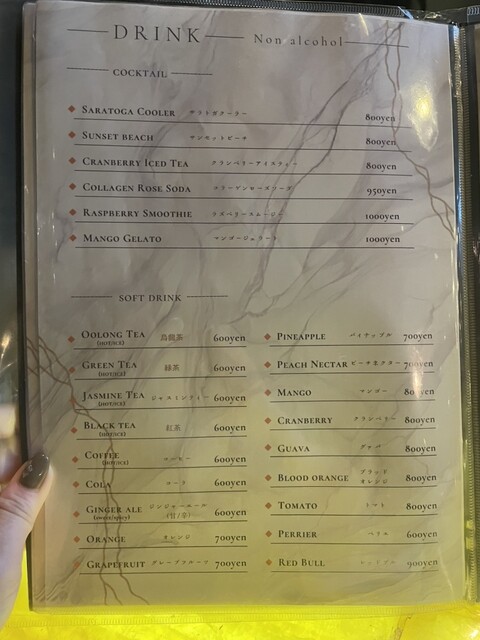 DRINK Non alcohol
COCKTAIL
SARATOGA COOLER サラトガクーラー 800yen
SUNSET BEACH サンセットビーチ 800yen
CRANBERRY ICED TEA クランベリーアイスティー 800yen
COLLAGEN ROSE SODA コラーゲンローズソーダ 950yen
RASPBERRY SMOOTHIE ラズベリースムージー 1000yen
MANGO GELATO マンゴージェラート 1000yen
SOFT DRINK
OOLONG TEA 烏龍茶 600yen
(HOT/ICE)
GREEN TEA 緑茶 600yen
(HOT/ICE)
JASMINE TEA ジャスミンティー 600yen
(HOT/ICE)
BLACK TEA 紅茶 600yen
(HOT/ICE)
COFFEE コーヒー 600yen
(HOT/ICE)
COLA コーラ 600yen
GINGER ALE ジンジャーエール 600yen
(sweet/spicy) (甘/辛)
ORANGE オレンジ 700yen
GRAPEFRUIT グレープフルーツ 700yen
PINEAPPLE パイナップル 700yen
PEACH NECTAR ピーチネクター 700yen
MANGO マンゴー 800yen
CRANBERRY クランベリー 800yen
GUAVA グァバ 800yen
BLOOD ORANGE ブラッド 800yen
オレンジ
TOMATO トマト 800yen
PERRIER ペリエ 600yen
RED BULL レッドブル 900yen